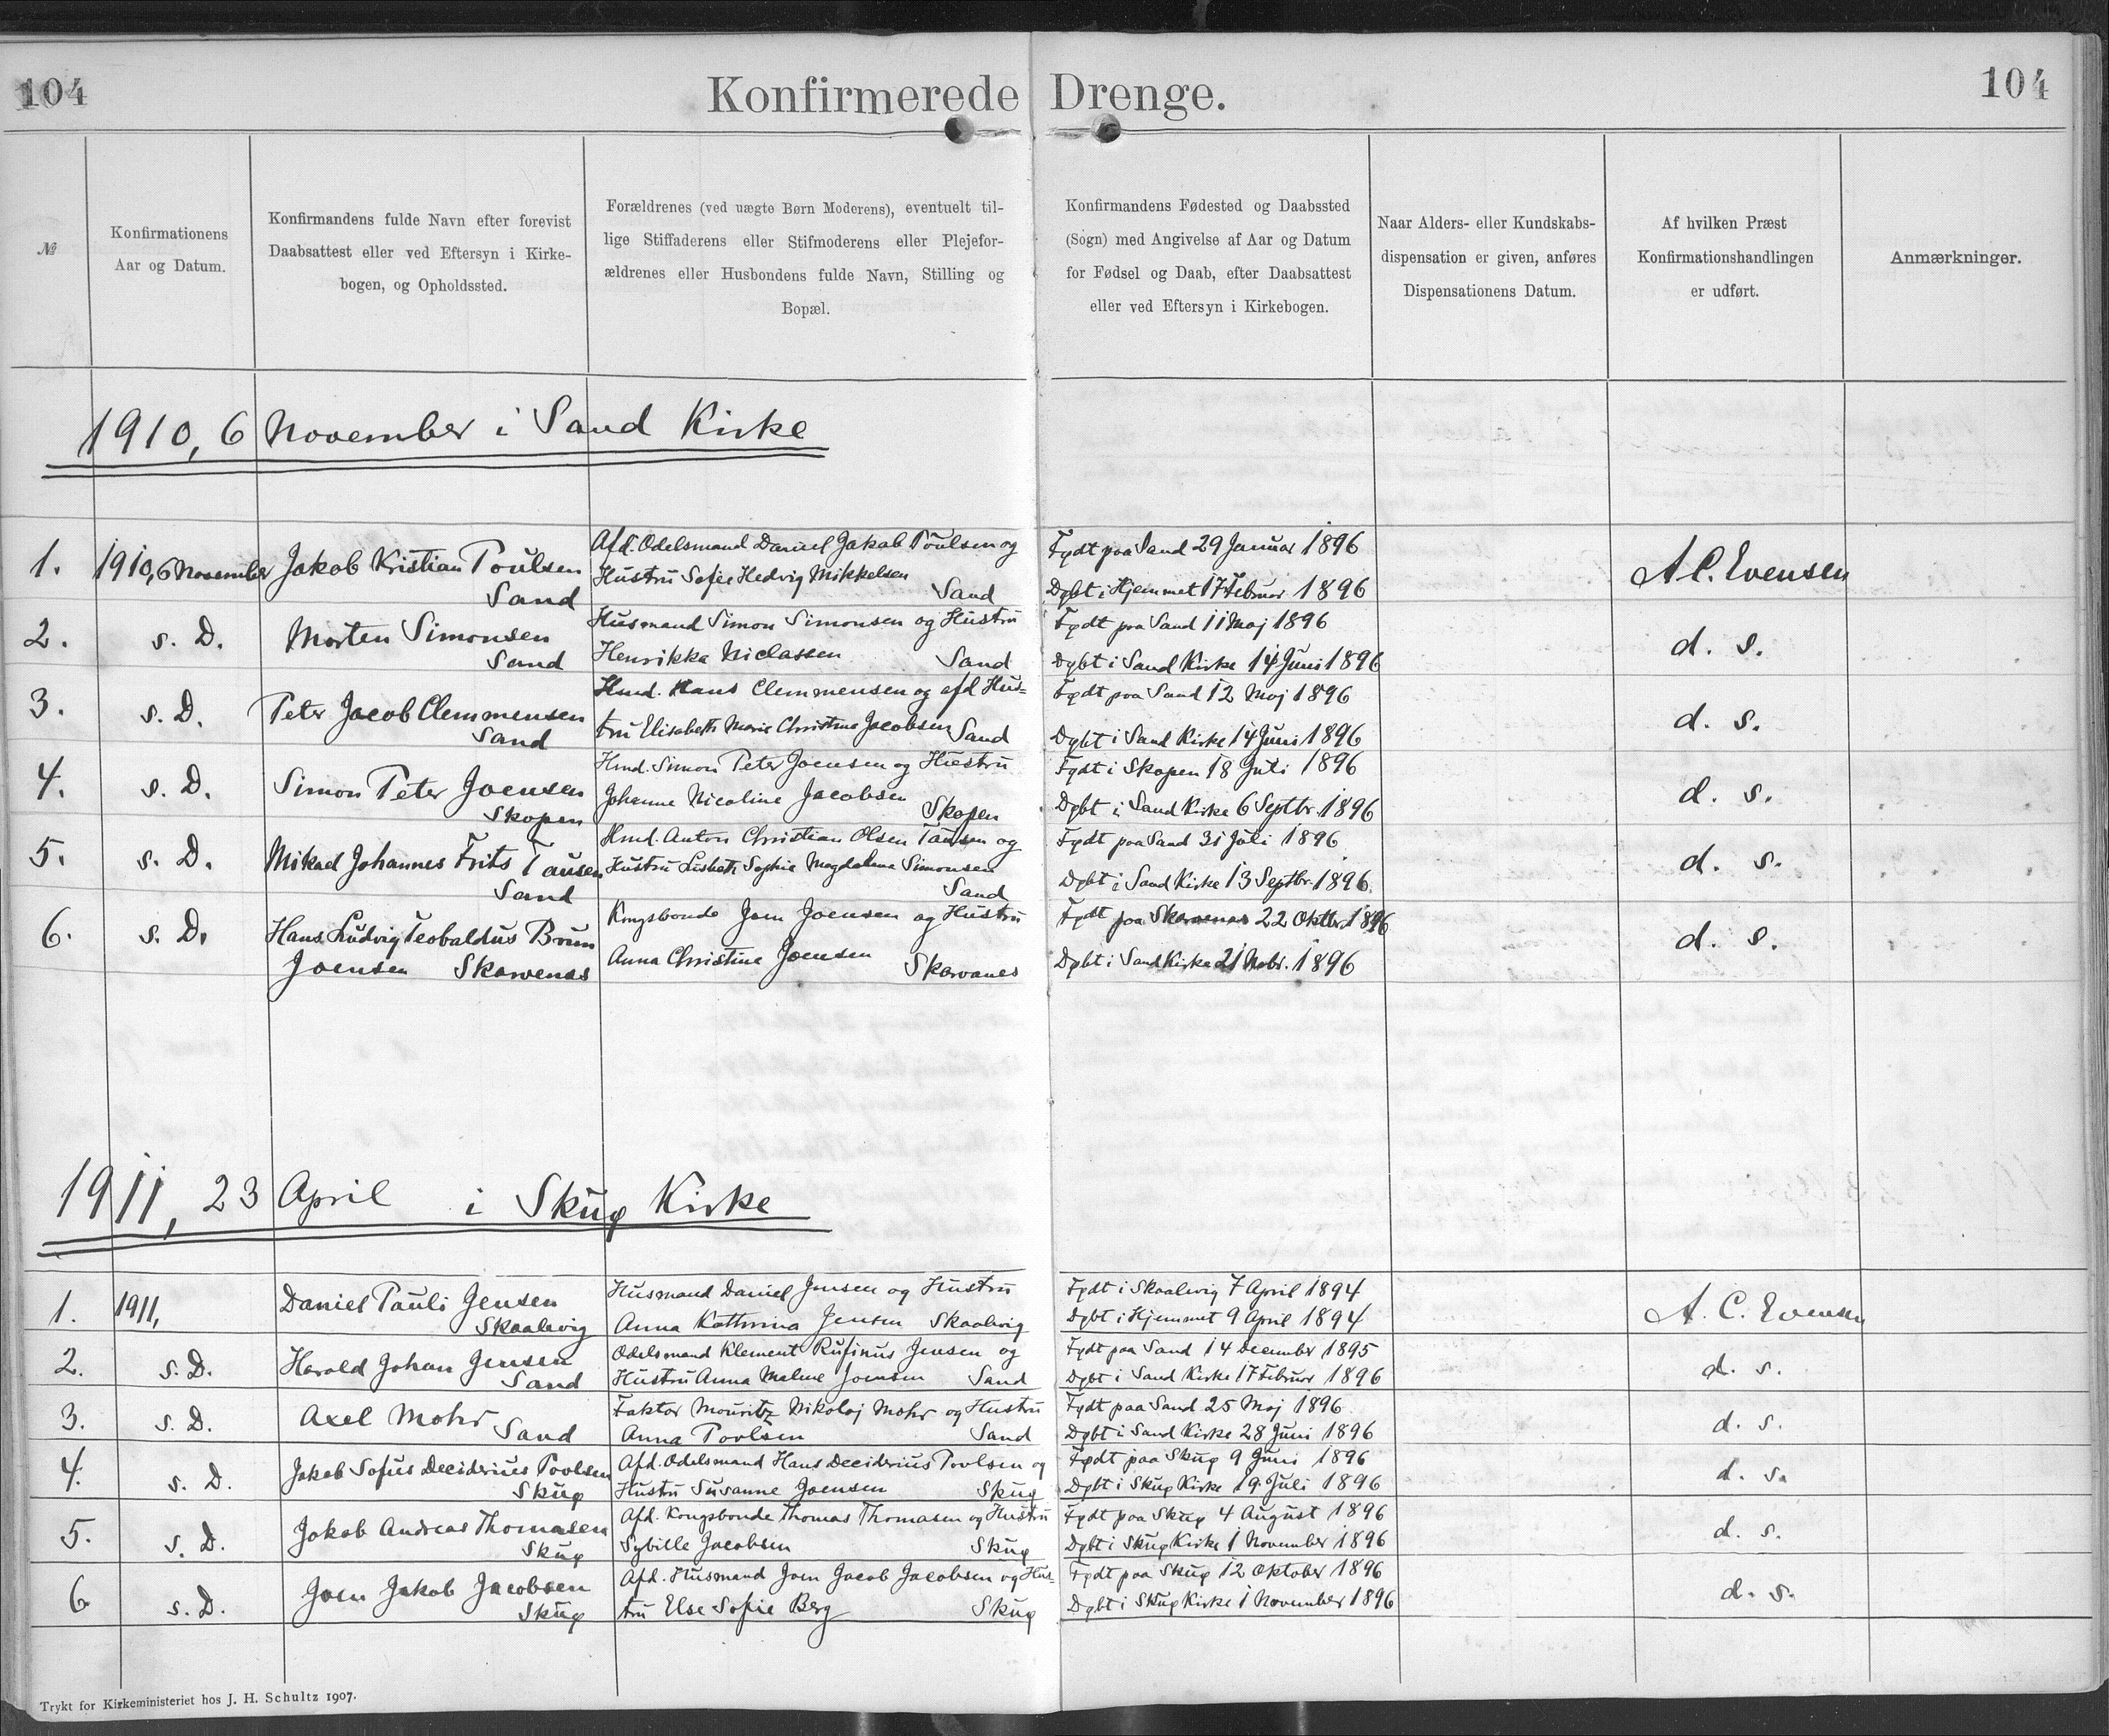 104
Konfirmerede Drenge.
104
№
Konfirmationens
Aar og Datum.
Konfirmandens fulde Navn efter forevist
Daabsattest eller ved Eftersyn i Kirke-
bogen, og Opholdssted.
Forældrenes (ved uægte Børn Moderens), eventuelt til-
lige Stiffaderens eller Stifmoderens eller Plejefor-
ældrenes eller Husbondens fulde Navn, Stilling og
Bopæl.
Konfirmandens Fødested og Daabssted
(Sogn) med Angivelse af Aar og Datum
for Fødsel og Daab, efter Daabsattest
eller ved Eftersyn i Kirkebogen.
Naar Alders- eller Kundskabs-
dispensation er given, anføres
Dispensationens Datum.
Af hvilken Præst
Konfirmationshandlingen
er udført.
Anmærkninger.
1910, 6 November i Sand Kirke
1.
1910, 6 November
Jakob Kristian Poulsen
Sand
Afd. Odelsmand Daniel Jakob Poulsen og
Hustru Sofie Hedvig Mikkelsen
Sand
Født paa Sand 29 Januar 1896
Døbt i Hjemmet 17 Februar 1896
A. C. Evensen
2.
s. D.
Morten Simonsen
Sand
Husmand Simon Simonsen og Hustru
Henrikka Niclassen Sand
Født paa Sand 11 Maj 1896
Døbt i Sand Kirke 14 Juni 1896
d. s.
3.
s. D.
Peter Jacob Clemmensen
Sand
Hmd. Hans Clemmensen og afd Hus=
tru Elisabeth Marie Christine Jacobsen Sand
Født paa Sand 12 Maj 1896
Døbt i Sand Kirke 14 Juni 1896
d. s.
4.
s. D.
Simon Peter Joensen
Skopen
Hmd. Simon Peter Joensen og Hustru
Johanne Nicoline Jacobsen
Skopen
Født i Skopen 18 Juli 1896
Døbt i Sand Kirke 6 Septbr. 1896
d. s.
5.
s. D.
Mikael Johannes Frits Tausen
Sand
Hmd. Anton Christian Olsen Tausen og
Hustru Lisbeth Sophie Magdalena Simonsen
Sand
Født paa Sand 31 Juli 1896
Døbt i Sand Kirke 13 Septbr. 1896.
d. s.
6.
s. D.
Hans Ludvig Teobaldus Brun
Joensen Skarvenes
Kongsbonde Joen Joensen og Hustru
Anna Christine Joensen
Skarvanes
Født paa Skarvenes 22 Oktbr. 1896
Døbt i Sand Kirke 21 Nobr. 1896
d. s.
1911, 23 April i Skuø Kirke
1.
1911,
Daniel Pauli Jensen
Skaalevig
Husmand Daniel Jensen og Hustru
Anna Kathrina Jensen Skaalvig
Født i Skaalevig 7 April 1894
Døbt i Hjemmet 9 April 1894
A. C. Evensen
2.
s. D.
Harald Johan Jensen
Sand
Odelsmand Klement Rufinus Jensen og
Hustru Anna Malene Joensen Sand
Født paa Sand 14 December 1895
Døbt i Sand Kirke 17 Februar 1896
d. s.
3.
s. D.
Axel Mohr
Sand
Faktor Mouritz Nikolaj Mohr og Hustru
Anna Poulsen Sand
Født paa Sand 25 Maj 1896
Døbt i Sand Kirke 28 Juni 1896
d. s.
4.
s. D.
Jakob Sofus Deciderius Poulsen
Skuø
Afd. Odelsmand Hans Deciderius Poulsen og
Hustru Susanne Joensen Skuø
Født paa Skuø 9 Juni 1896
Døbt i Skuø Kirke 19 Juli 1896
d. s.
5.
s. D.
Jakob Andreas Thomasen
Skuø
Afd. Kongsbonde Thomas Thomasen og Hustru
Sybille Jacobsen Skuø
Født paa Skuø 4 August 1896
Døbt i Skuø Kirke 1 November 1896
d. s.
6
s. D.
Joen Jakob Jacobsen
Skuø
Afd. Husmand Joen Jacob Jacobsen og Hus-
tru Else Sofie Berg Skuø
Født paa Skuø 12 Oktober 1896
Døbt i Skuø Kirke 1 November 1896
d. s.
Trykt for Kirkeministeriet hos J. H. Schultz 1907.